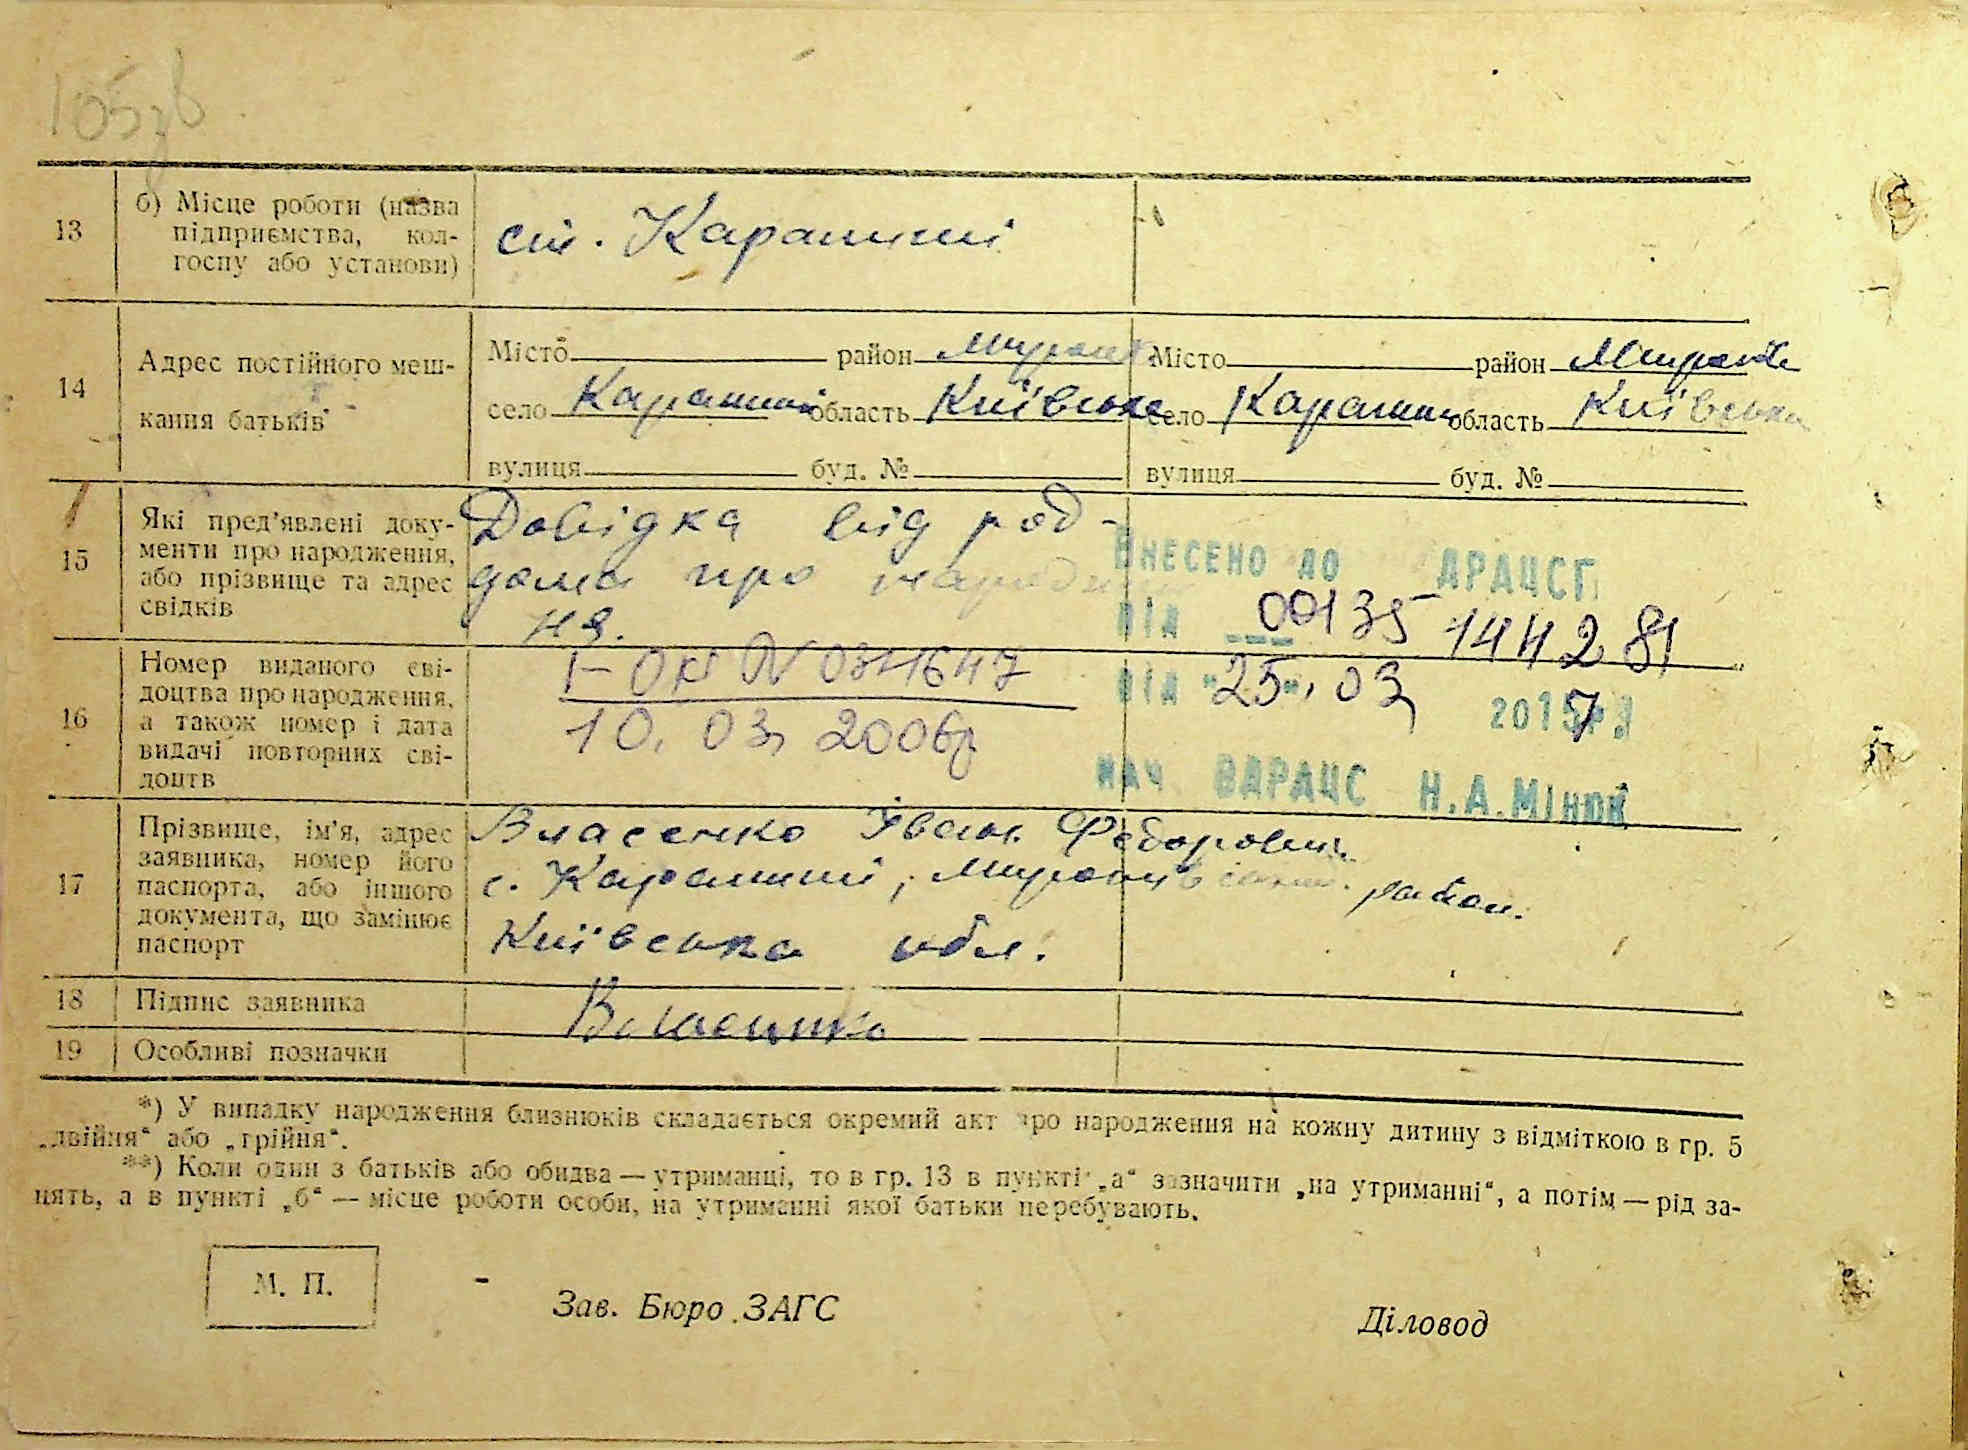 105зв
13 б) Місце роботи (назва підприємства, колгоспу або установи)
ст. Карапиші
14 Адрес постійного мешкання батьків
Місто район Мирон Місто район Мирон
село Карапиші область Київська село Карапиші область Київська
вулиця буд. № вулиця буд. №
15 Які пред'явлені документи про народження, або прізвище та адрес свідків
Довідка від род-
дома про народжен
ня.
ВНЕСЕНО ДО ДРАЦСГ
ПІД 00135 144281
ВІД "25" 03 2015 7 р.
НАЧ ВДРАЦС Н.А.МІНЮК
16 Номер виданого свідоцтва про народження, а також номер і дата видачі повторних свідоцтв
І-ОК № 031647
10. 03. 2006р
17 Прізвище, ім'я, адрес заявника, номер його паспорта, або іншого документа, що замінює паспорт
Власенко Іван Федорович
с. Карапиші, Миронівськ. район.
Київська обл.
18 Підпис заявника
Власенко
19 Особливі позначки
*) У випадку народження близнюків складається окремий акт про народження на кожну дитину з відміткою в гр. 5
„двійня“ або „трійня“.
**) Коли один з батьків або обидва — утриманці, то в гр. 13 в пункті „а“ зазначити „на утриманні“, а потім — рід за-
нять, а в пункті „б“ — місце роботи особи, на утриманні якої батьки перебувають.
М. П.
Зав. Бюро ЗАГС
Діловод